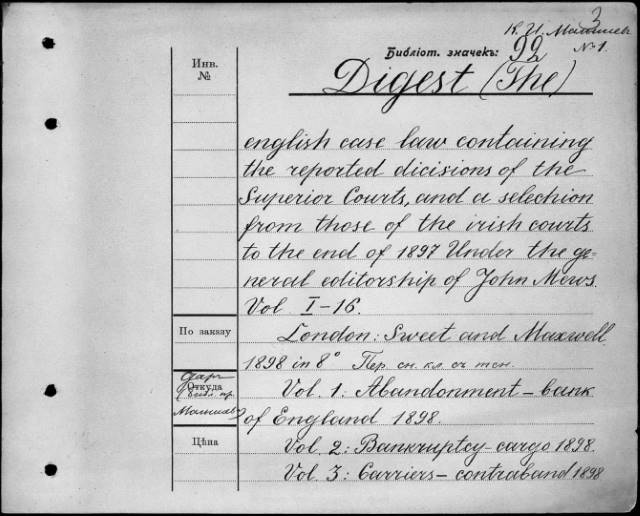 3
К. И. Малышев
Библіот. значекъ: 92 №1.
Digest (The)
Инв.
№
english case law containing
the reported dicisions of the
Superior Courts, and a selechion
from those of the irish courts
to the end of 1897 Under the ge-
neral editorship of John Mews.
Vol I-16.
По заказу
London: Sweet and Maxwell
1898 in 8° Пер. сн. кл. съ тсн.
Откуда
Малышев
Vol. 1: Abandonment - bank
of England 1898.
Цѣна
Vol. 2: Bankruptcy - cargo 1898.
Vol. 3: Carriers - contraband 1898